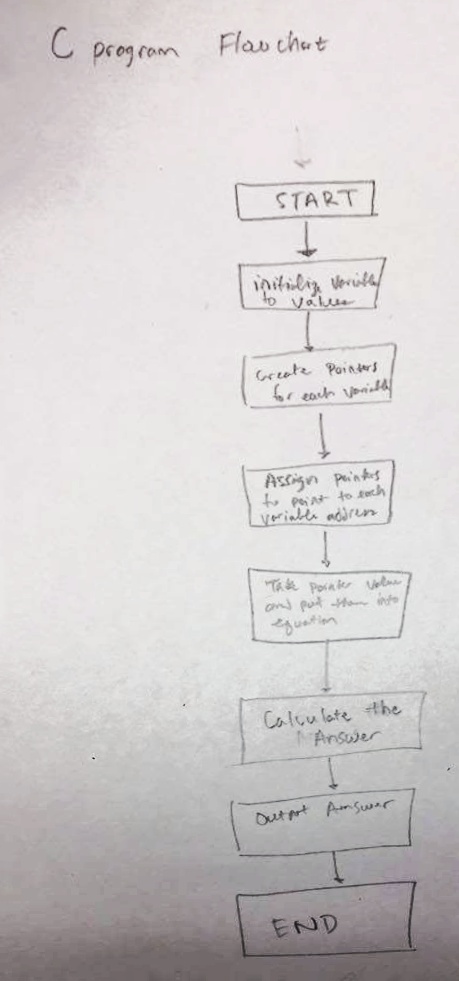 C program Flowchart
START
initialize variable
to values
Create Pointers
for each variable
Assign pointers
to point to each
variable address
Take pointer value
and put them into
equation
Calculate the
Answer
Output Answer
END